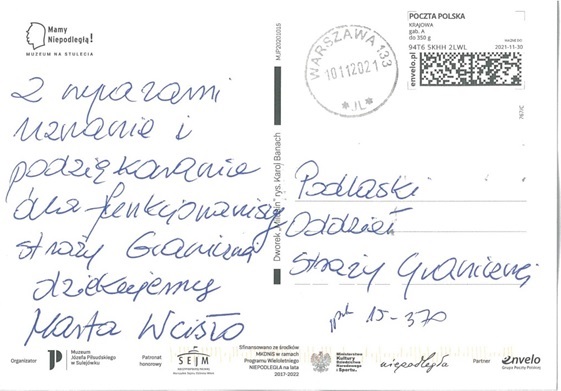 Mamy
Niepodległą!
MUZEUM NA STULECIA
Z wyrazami
uznania i
podziękowania
dla funkcjonariuszy
straży Granicznej
dziękujemy
Marta Wcisło
MJP20201015
Dworek „Milusin” rys. Karol Banach
WARSZAWA 133
10112021
* JL *
POCZTA POLSKA
KRAJOWA
gab. A
do 350 g
WAŻNE DO
94T6 5KHH 2LWL 2021-11-30
envelo.pl
Podlaski
Oddział
straży Granicznej
15-370
Organizator
Muzeum
Józefa Piłsudskiego
w Sulejówku
Patronat
honorowy
SEJM
Sfinansowano ze środków
MKDNiS w ramach
Programu Wieloletniego
NIEPODLEGŁA na lata
2017-2022
Ministerstwo
Kultury
Dziedzictwa
Narodowego
i Sportu.
niepodległa
Partner
envelo
Grupa Poczty Polskiej